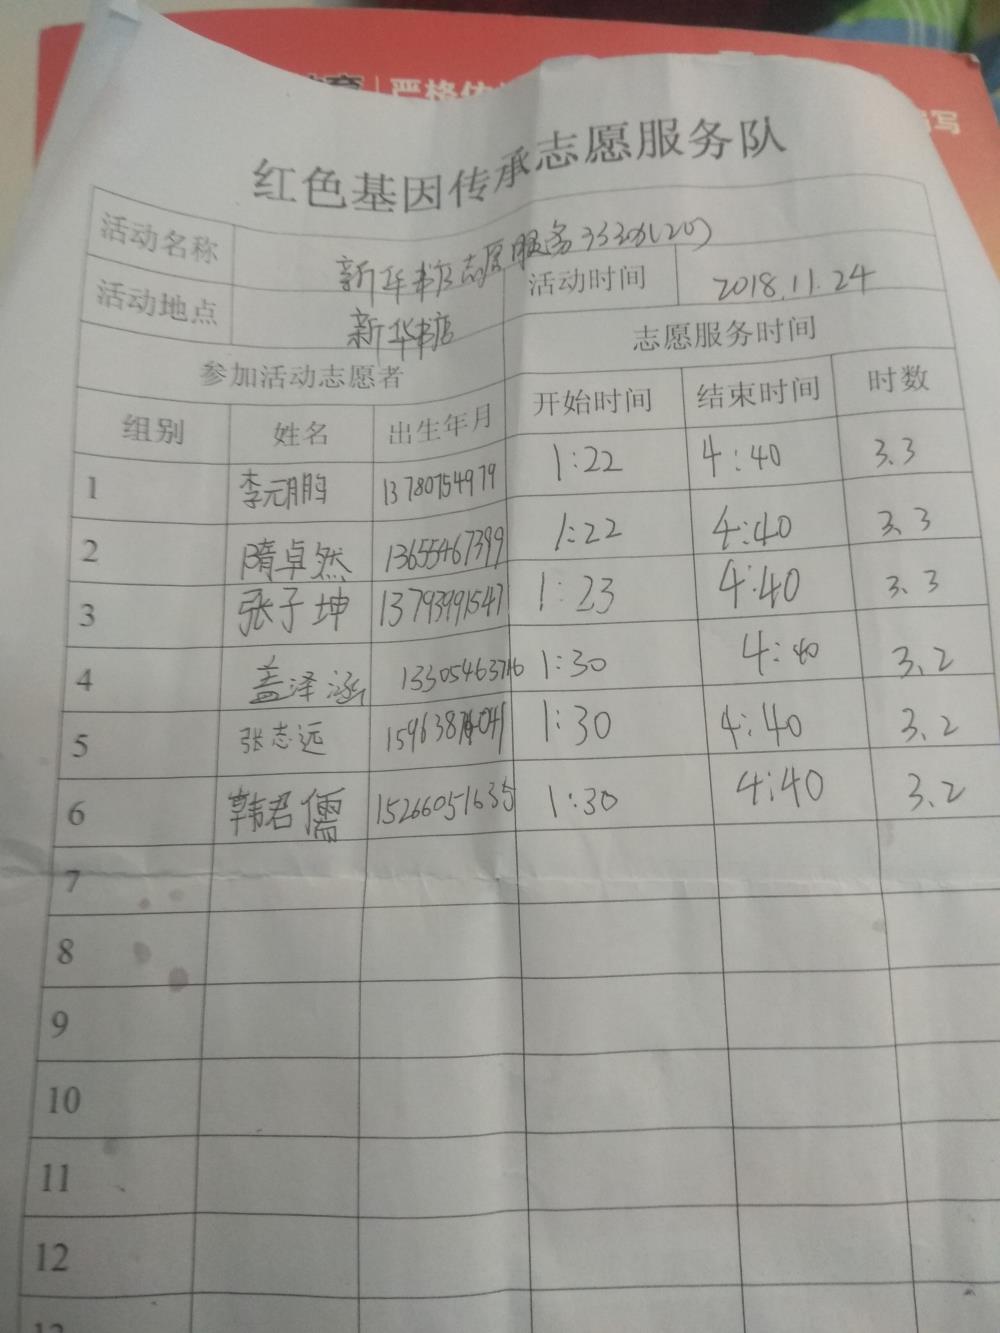 严格依
写
红色基因传承志愿服务队
活动名称 新华书店志愿服务
活动地点 新华书店 活动时间 2018.11.24
参加活动志愿者 志愿服务时间
组别 姓名 出生年月 开始时间 结束时间 时数
1 李元鹏 13780754979 1:22 4:40 3.3
2 隋卓然 13655467399 1:22 4:40 3.3
3 张子坤 13793991547 1:23 4:40 3.3
4 盖泽涵 1:30 4:40 3.2
5 张志远 1:30 4:40 3.2
6 韩君儒 15266051635 1:30 4:40 3.2
7
8
9
10
11
12